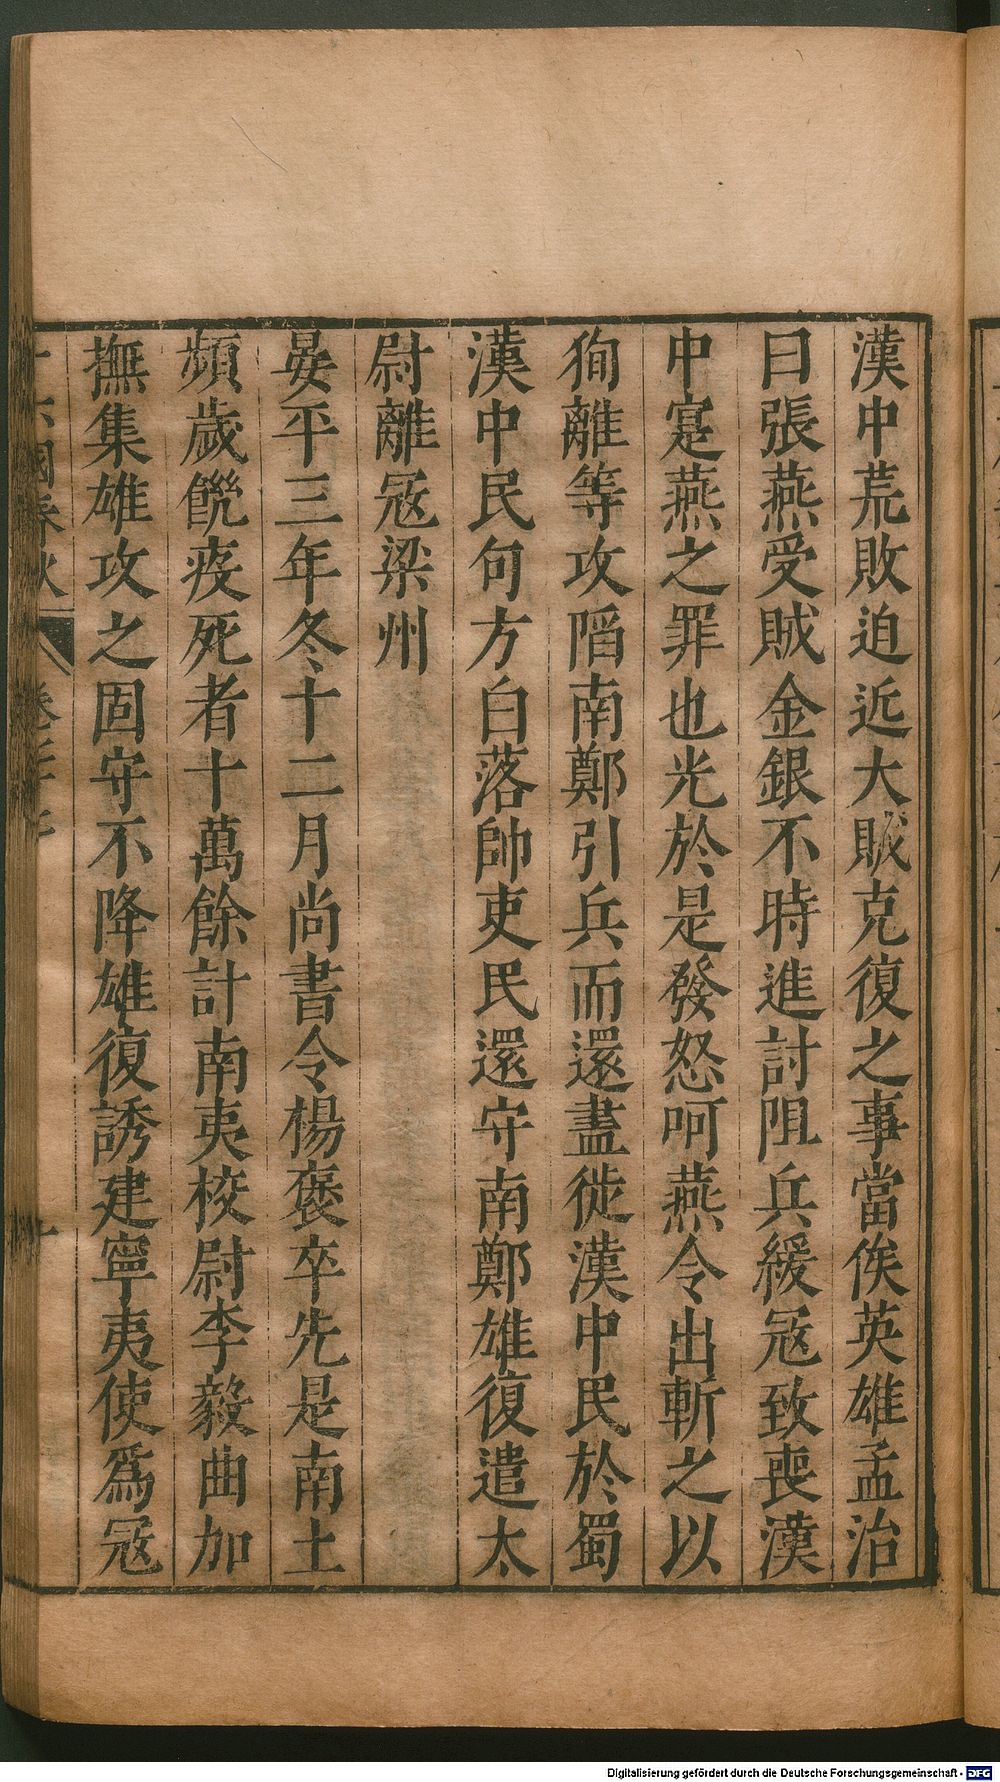 漢中荒敗迫近大賊克復之事當俟英雄孟治
曰張燕受賊金銀不時進討阻兵緩冦致喪漢
中寔燕之罪也光於是發怒呵燕令出斬之以
狥離等攻䧟南鄭引兵而還盡徙漢中民於蜀
漢中民句方白落帥吏民還守南鄭雄復遣太
尉離冦梁州
晏平三年冬十二月尚書令楊褒卒先是南土
頻歲饑疫死者十萬餘計南夷校尉李毅曲加
撫集雄攻之固守不降雄復誘建寧夷使爲冦
十六國春秋 卷之七十七
Digitalisierung gefördert durch die Deutsche Forschungsgemeinschaft - DFG